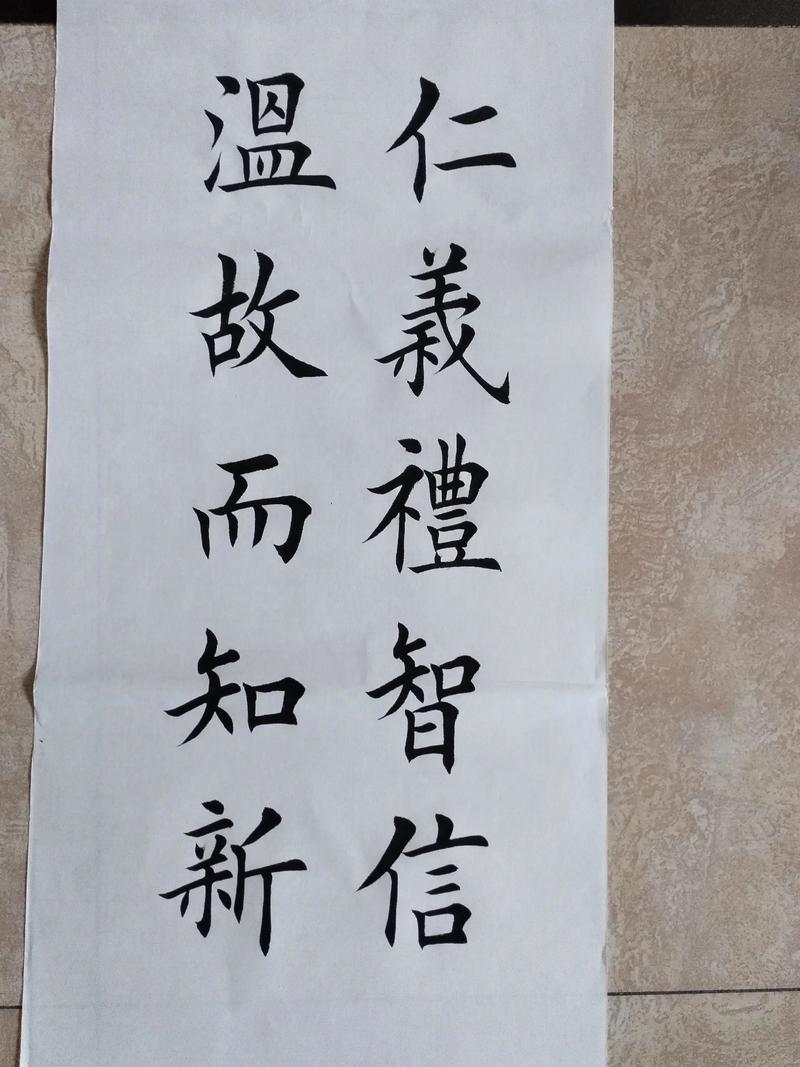 仁義禮智信
溫故而知新